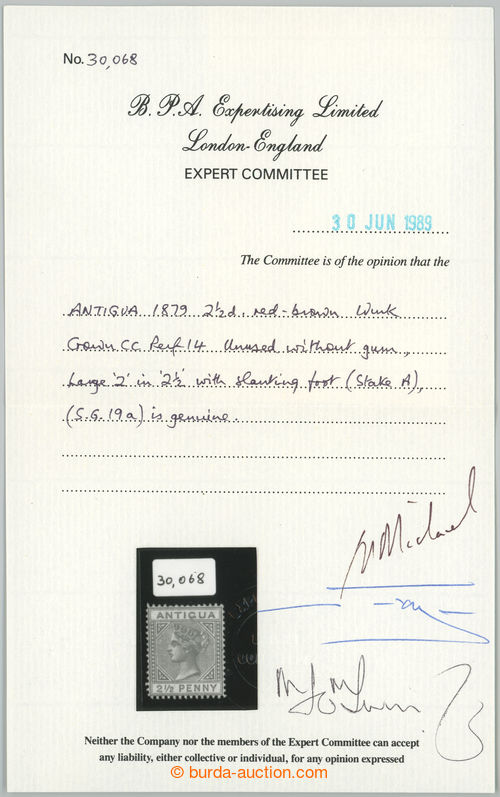 No. 30,068
B. P. A. Expertising Limited
London-England
EXPERT COMMITTEE
30 JUN 1989
The Committee is of the opinion that the
ANTIGUA 1879 2½d. red-brown Wmk
Crown CC Perf 14 Unused without gum,
Large '2' in '2½' with slanting foot (State A),
(S.G. 19a) is genuine.
30,068
ANTIGUA
2½ PENNY
Neither the Company nor the members of the Expert Committee can accept
any liability, either collective or individual, for any opinion expressed
© burda-auction.com